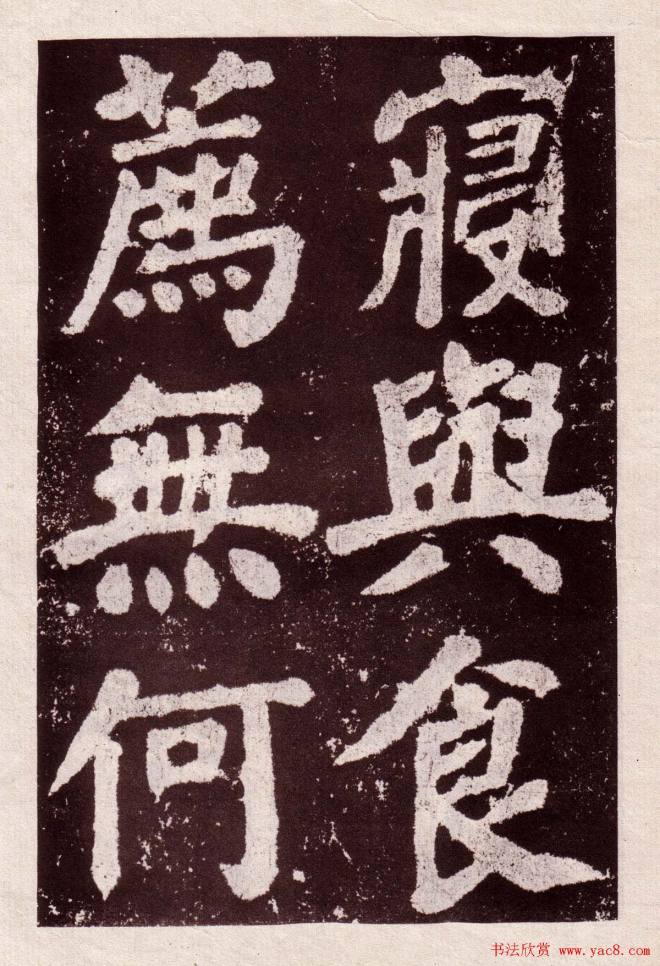 寢與食
薦無何
书法欣赏 www.yac8.com